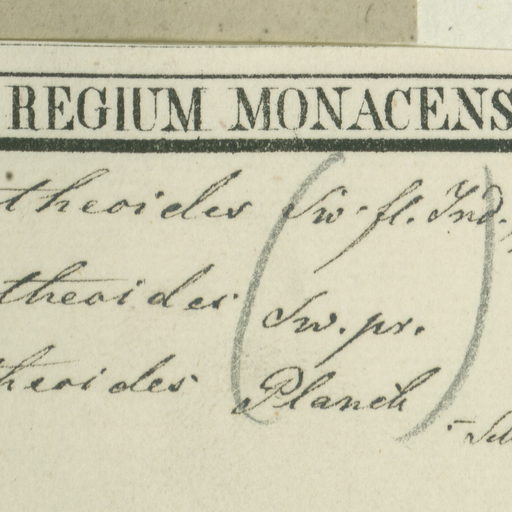 REGIUM MONACENS
theoides (Sw. fl. Ind.
theoides Sw. pr.
theoides Planch)